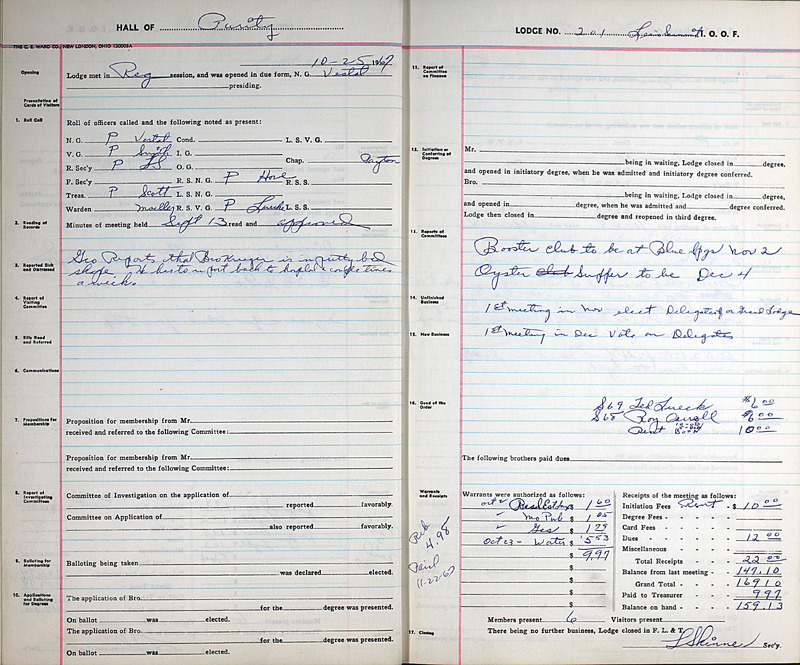 HALL OF Purity
THE C. E. WARD CO., NEW LONDON, OHIO 120005A
10-25 1967
Opening
Lodge met in Reg session, and was opened in due form, N. G. Vestal
presiding.
Presentation of Cards of Visitors
1. Roll Call
Roll of officers called and the following noted as present:
N. G. P Vestal Cond. L. S. V. G.
V. G. P Smith I. G. Chap. Payton
R. Sec'y P LS O. G.
F. Sec'y R. S. N. G. P Hove R. S. S.
Treas. P Scott L. S. N. G.
Warden R. S. V. G. P Lueck L. S. S.
2. Reading of Records
Minutes of meeting held Sept 13 read and approved
3. Reported Sick and Distressed
Geo Reports that Bro Kruger is in pretty bad
shape. He has to report back to hospital couple times
a week.
4. Report of Visiting Committee
5. Bills Read and Referred
6. Communications
7. Propositions for Membership
Proposition for membership from Mr.
received and referred to the following Committee:
Proposition for membership from Mr.
received and referred to the following Committee:
8. Report of Investigating Committee
Committee of Investigation on the application of
reported favorably.
Committee on Application of
also reported favorably.
9. Balloting for Membership
Balloting being taken
was declared elected.
10. Applications and Balloting for Degrees
The application of Bro.
for the degree was presented.
On ballot was elected.
The application of Bro.
for the degree was presented.
On ballot was elected.
LODGE NO. 201 I. O. O. F.
11. Report of Committee on Finance
12. Initiation or Conferring of Degrees
Mr.
being in waiting, Lodge closed in degree,
and opened in initiatory degree, when he was admitted and initiatory degree conferred.
Bro.
being in waiting, Lodge closed in degree,
and opened in degree, when he was admitted and degree conferred.
Lodge then closed in degree and reopened in third degree.
Reports of Committees
Booster Club to be at Blue Spgs Nov 2
Oyster Club Supper to be Dec 4
14. Unfinished Business
1st meeting in Nov elect Delegates for Grand Lodge
15. New Business
1st meeting in Dec Vote on Delegates
16. Good of the Order
S69 Ted Lueck $6 00
S68 Roy $6 00
Rent 10 00
The following brothers paid dues
Warrants and Receipts
Warrants were authorized as follows:
Oct 2 $ 1 60
✓ Mo Pub $ 1 05
✓ Gas $ 1 79
Oct 23 - Water $ 5 53
$ 9.97
$
$
$
$
Pub 4.98
Paid 11-22-67
Receipts of the meeting as follows:
Initiation Fees Rent - $ 10 00
Degree Fees
Card Fees
Dues 12 00
Miscellaneous
Total Receipts 22 00
Balance from last meeting - 147.10
Grand Total 169 10
Paid to Treasurer 9 97
Balance on hand 159.13
Members present 6 Visitors present
17. Closing
There being no further business, Lodge closed in F. L. & T.
L Skinner Sec'y.